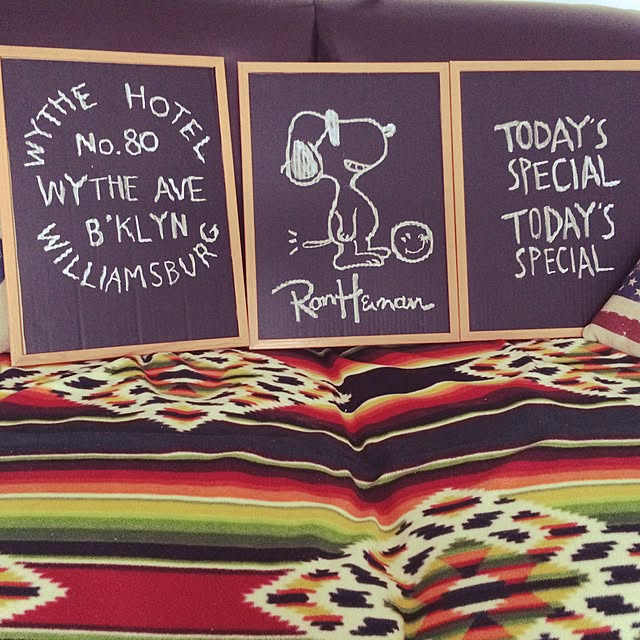 WYTHE HOTEL
No.80
WYTHE AVE
B'KLYN
WILLIAMSBURG
Ron Herman
TODAY'S
SPECIAL
TODAY'S
SPECIAL